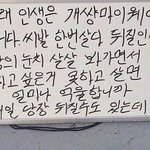 래 인생은 개썅마이웨이
니다. 씨발 한번살다 뒤질인
남이 눈치 살살 봐가면서
하고 싶은거 못하고 살면
얼마나 억울합니까
내일 당장 뒤질수도 있는데